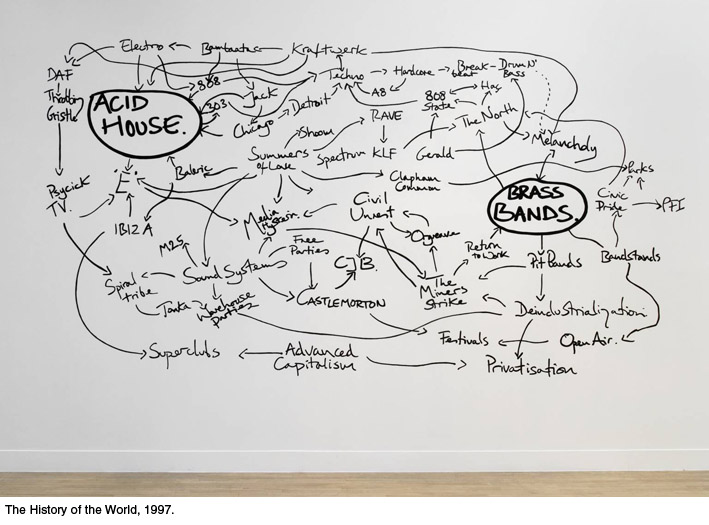 Electro
Bambaataa
Kraftwerk
DAF
808
Techno
Hardcore
Break-
beat
Drum N'
Bass
Throbbing
Gristle
ACID
HOUSE.
303
Jack
Detroit
A8
808
State
Hac
Chicago
Shoom
RAVE
The North
Melancholy
Summers
of Love
Spectrum
KLF
Gerald
'E'
Balearic
Clapham
Common
Parks
Psychick
TV.
IBIZA
Media
Hysteria
Civil
Unrest
BRASS
BANDS.
Civic
Pride
PFI
M25
Free
Parties
CJB.
Orgreave
Return
to Work
Spiral
tribe
Sound Systems
The
Miners
Strike
Pit Bands
Bandstands
Tonka
Warehouse
parties
CASTLEMORTON
Deindustrialization
Superclubs
Advanced
Capitalism
Festivals
Open Air.
Privatisation
The History of the World, 1997.